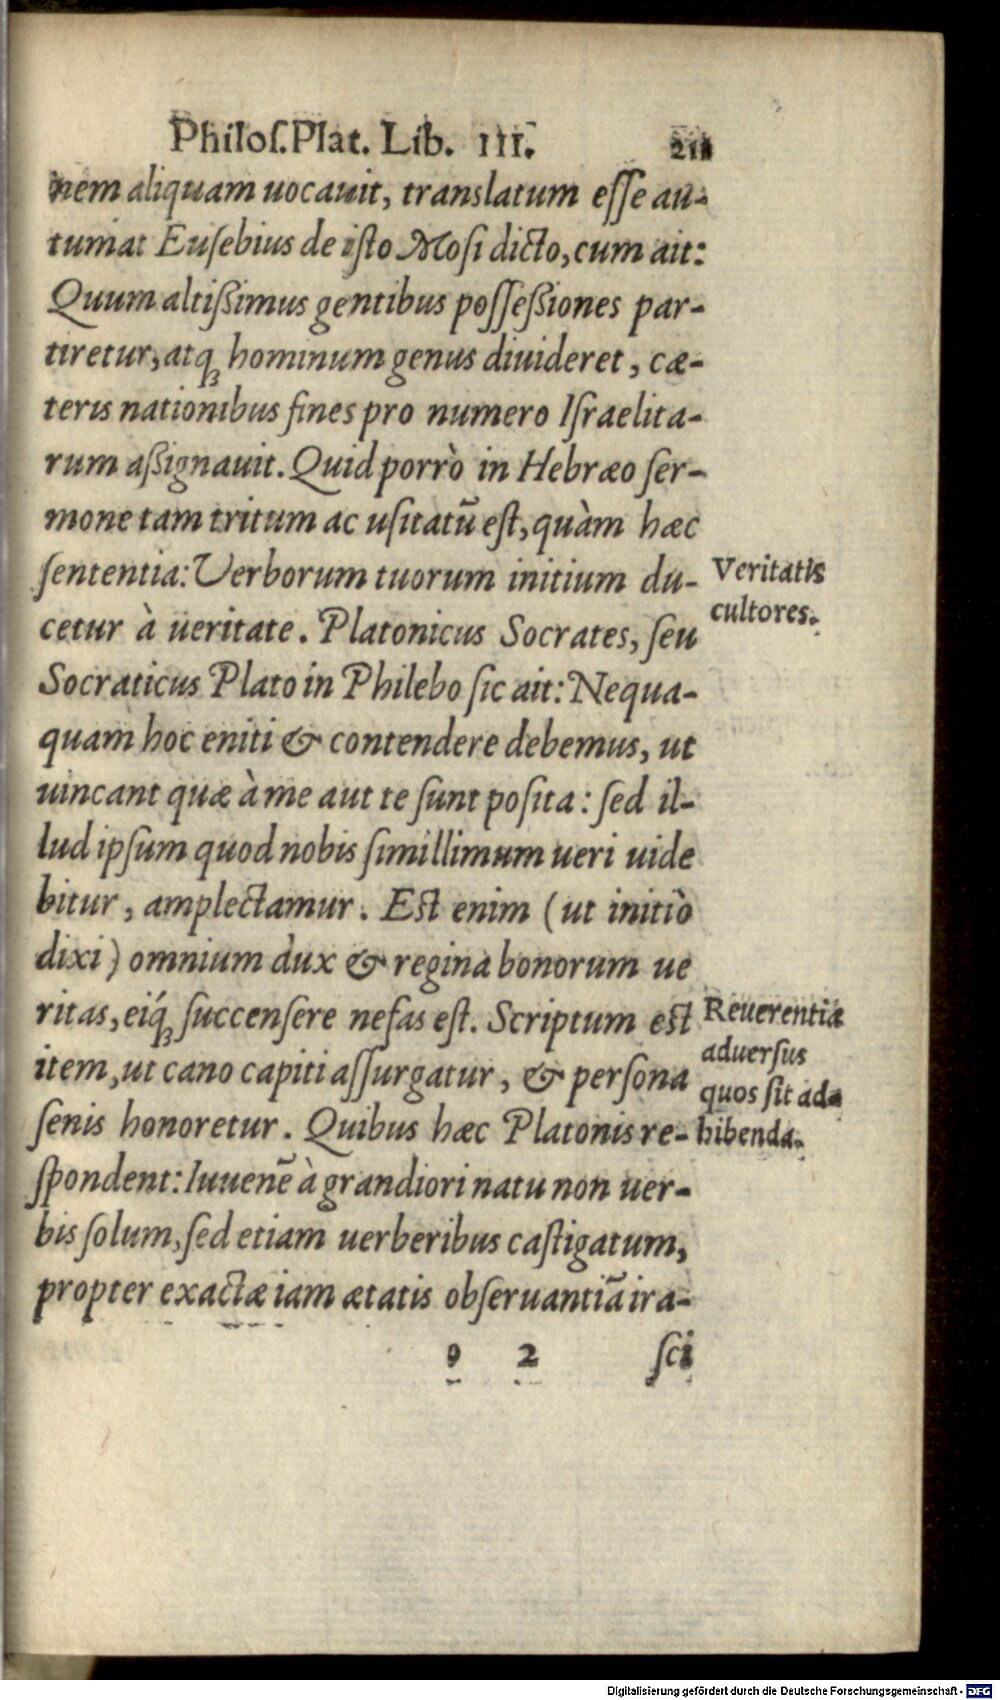 Philoſ. Plat. Lib. III. 211
nem aliquam uocauit, translatum eſſe au-
tumat Euſebius de iſto Moſi dicto, cum ait:
Quum altißimus gentibus poſſeßiones par-
tiretur, atq́ hominum genus diuideret, cæ-
teris nationibus fines pro numero Iſraelita-
rum aßignauit. Quid porrò in Hebræo ſer-
mone tam tritum ac uſitatũ eſt, quàm hæc
ſententia: Verborum tuorum initium du-
cetur à ueritate. Platonicus Socrates, ſeu
Socraticus Plato in Philebo ſic ait: Nequa-
quam hoc eniti & contendere debemus, ut
uincant quæ à me aut te ſunt poſita: ſed il-
lud ipſum quod nobis ſimillimum ueri uide
bitur, amplectamur. Eſt enim (ut initiò
dixi) omnium dux & regina bonorum ue
ritas, eíq; ſuccenſere nefas eſt. Scriptum eſt
item, ut cano capiti aſſurgatur, & perſona
ſenis honoretur. Quibus hæc Platonis re-
ſpondent: Iuuenē à grandiori natu non uer-
bis ſolum, ſed etiam uerberibus caſtigatum,
propter exactæ iam ætatis obſeruantiã ira-
o 2 ſci
Veritatis
cultores.
Reuerentia
aduerſus
quos ſit ad-
hibenda.
Digitalisierung gefördert durch die Deutsche Forschungsgemeinschaft - DFG